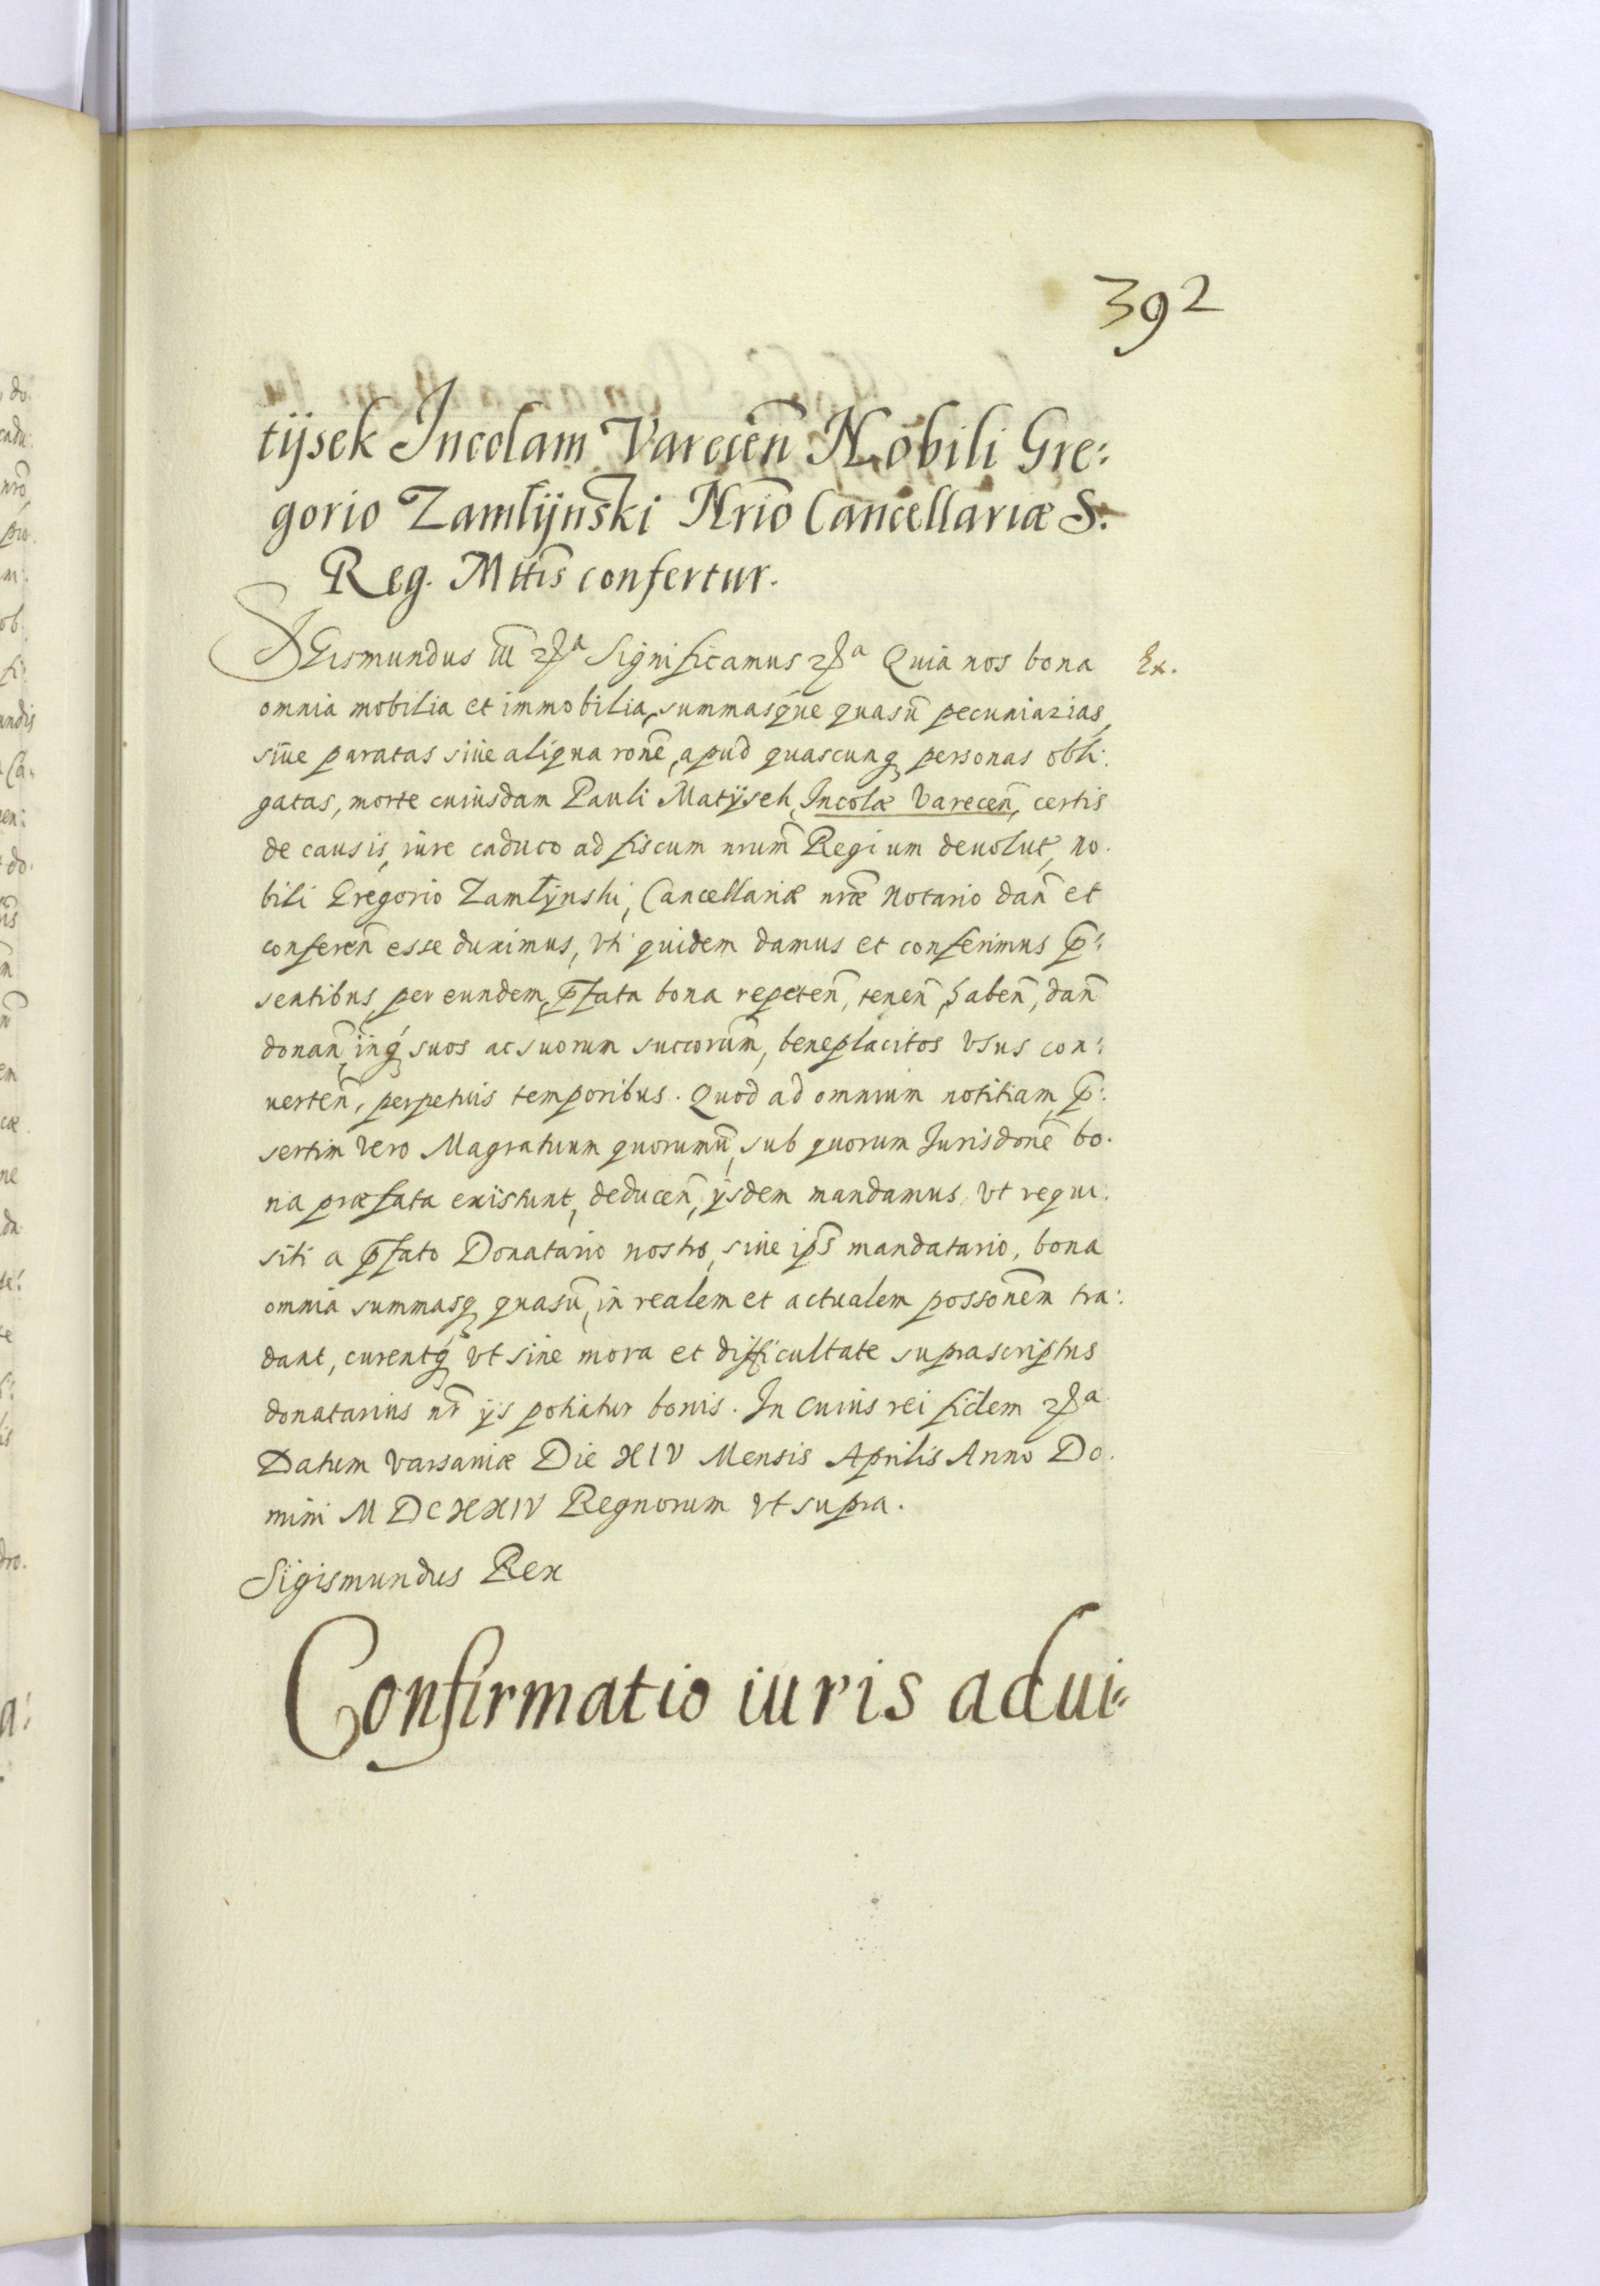 392
tijsek Incolam Varecen̄ Nobili Gre:
gorio Zamłyński Nrio͠ Cancellariæ S:
Reg. Mttis͠ confertur.
SIgismundus III͠ etc͠a Significamus etc͠a Quia nos bona
Ex.
omnia mobilia et immobilia, summasque quasu͠ pecuniarias,
siue paratas siue aliqua rone͠, apud quascunq personas obli:
gatas, morte cuiusdam Pauli Matÿsek, Incolæ Varecen͠, certis
de causis, iure caduco ad fiscum nrum͠ Regium deuolut, no.
bili Gregorio Zamłÿnski, Cancellariæ nræ͠ Notario dan͠ et
conferen͠ esse duximus, vti quidem damus et conferimus p͠:
sentibus, per eundem, p͠fata bona repeten͠, tenen͠, haben͠, dan͠
donan͠, inq́ suos ac suorum succorum͠, beneplacitos vsus con:
uerten͠, perpetuis temporibus. Quod ad omnium notitiam, p͠:
sertim vero Magratuum quorumu͠, sub quorum Jurisdone͠ bo.
na præfata existunt, deducen͠, ÿsdem mandamus vt requi:
siti a p͠fato Donatario nostro, siue ips͠ mandatario, bona
omnia summasq quasu͠, in realem et actualem possonem͠ tra:
dant, curentq́ vt sine mora et difficultate suprascriptus
donatarius nr͠ ÿs potiatur bonis. In cuius rei fidem etc͠a
Datum Varsauiæ Die XIV Mensis Aprilis Anno Do.
mini MDCXXIV Regnorum vt supra.
Sigismundus Rex
Confirmatio iuris adui=